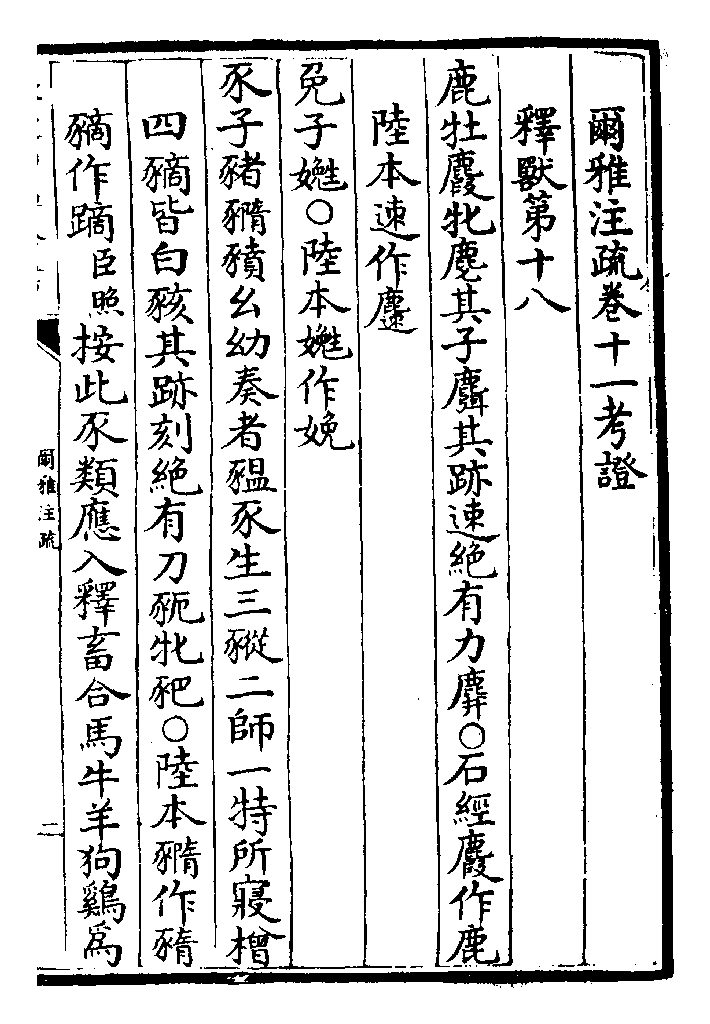 爾雅注疏卷十一考證
釋獸第十八
鹿牡麚牝麀其子麛其跡速絶有力麉〇石經麚作鹿
陸本速作𪋝
兎子嬎〇陸本嬎作娩
豕子豬䝐豶幺幼奏者豱豕生三豵二師一特所寢橧
四豴皆白豥其跡刻絶有刀豟牝豝〇陸本䝐作豬
豴作蹢臣照按此豕類應入釋畜合馬牛羊狗鷄爲
爾雅注疏
二